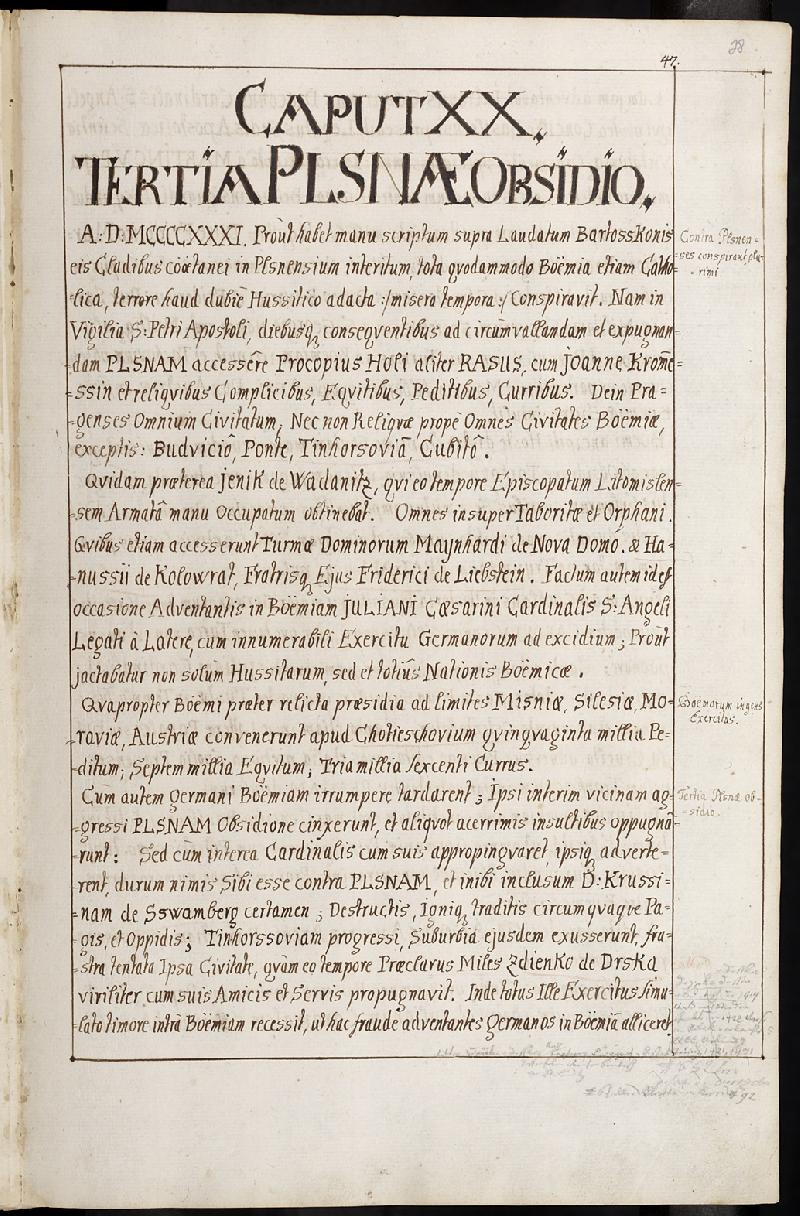 28
47.
CAPUT XX.
TERTIA PLSNÆ OBSIDIO.
A: D: MCCCCXXXI. Proùt habet manu scriptum supra Laudatum Bartoss Konis
eis Cladibus cöætanei in Plsnensium interitum, tota qvodammodo Böëmia etiam Catho-
-lica, terrore haud dubiè Hussitico adacta :/misera tempora:/ Conspiravit. Nam in
Vigilia S: Petri Apostoli, diebusq, conseqventibus ad circumvallandam et expugnan-
dam PLSNAM accessêre Procopius Holi aliter RASUS, cum Joanne Krome-
-ssin et reliqvibus Complicibus, Eqvitibus, Peditibus, Curribus. Dein Pra-
-genses Omnium Civitatum, Nec non Reliqvæ propè Omnes Civitates Böëmiæ,
exceptis: Budviciō, Ponte, Tinhorsoviā, Cubitō.
Qvidam præterea Jenik de Wadanitz, qvi eo tempore Episcopatum Litomislen-
-sem Armatâ manu Occupatum obtinebat. Omnes insuper Taboritæ et Orphani.
Qvibus etiam accesserunt Turmæ Dominorum Maynhardi de Nova Domo. & Ha-
-nussii de Kolowrat, Fratrisq, Ejus Friderici de Liebstein. Factum autem id est
occasione Adventantis in Böëmiam JULIANI Cæsarini Cardinalis S: Angeli
Legati à Latere, cum innumerabili Exercitu Germanorum ad excidium; Proùt
jactabatur non solùm Hussitarum, sed et totiùs Nationis Böëmicæ.
Qvapropter Böëmi præter relicta præsidia ad limites Misniæ, Silesiæ, Mo-
-raviæ, Austriæ convenerunt apud Chotieschovium qvinqvaginta millia Pe-
-ditum; Septem millia Eqvitum; Tria millia sexcenti Currus.
Cum autem Germani Böëmiam irrumpere tardarent; Ipsi interim vicinam ag-
-gressi PLSNAM Obsidione cinxerunt, et aliqvot acerrimis insultibus oppugnâ-
-runt: Sed cùm interea Cardinalis cum suis appropinqvaret, ipsiq, adverte-
rent, durum nimis Sibi esse contra PLSNAM, et inibi inclusum D: Krussi-
-nam de Sswamberg certamen; Destructis, Igniq, traditis circumqvaqve Pa-
-gis, et Oppidis; Tinhorssoviam progressi, Suburbia ejusdem exusserunt, fru-
-stra tentata Ipsa Civitate, qvàm eo tempore Præclarus Miles Zdienko de Drska
viriliter cum suis Amicis et Servis propugnavit. Inde totus Ille Exercitus simu-
-lato timore intrà Böëmiam recessit, ut hac fraude adventantes Germanos in Böëmiā alliceret
Contra Plsnen-
-ses conspirant plu-
-rimi
Boemorum ingens
Exercitus.
Tertia Plsnæ ob-
-sidio.